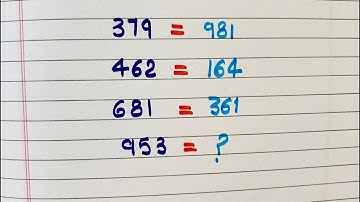 379 = 981
462 = 164
681 = 361
953 = ?